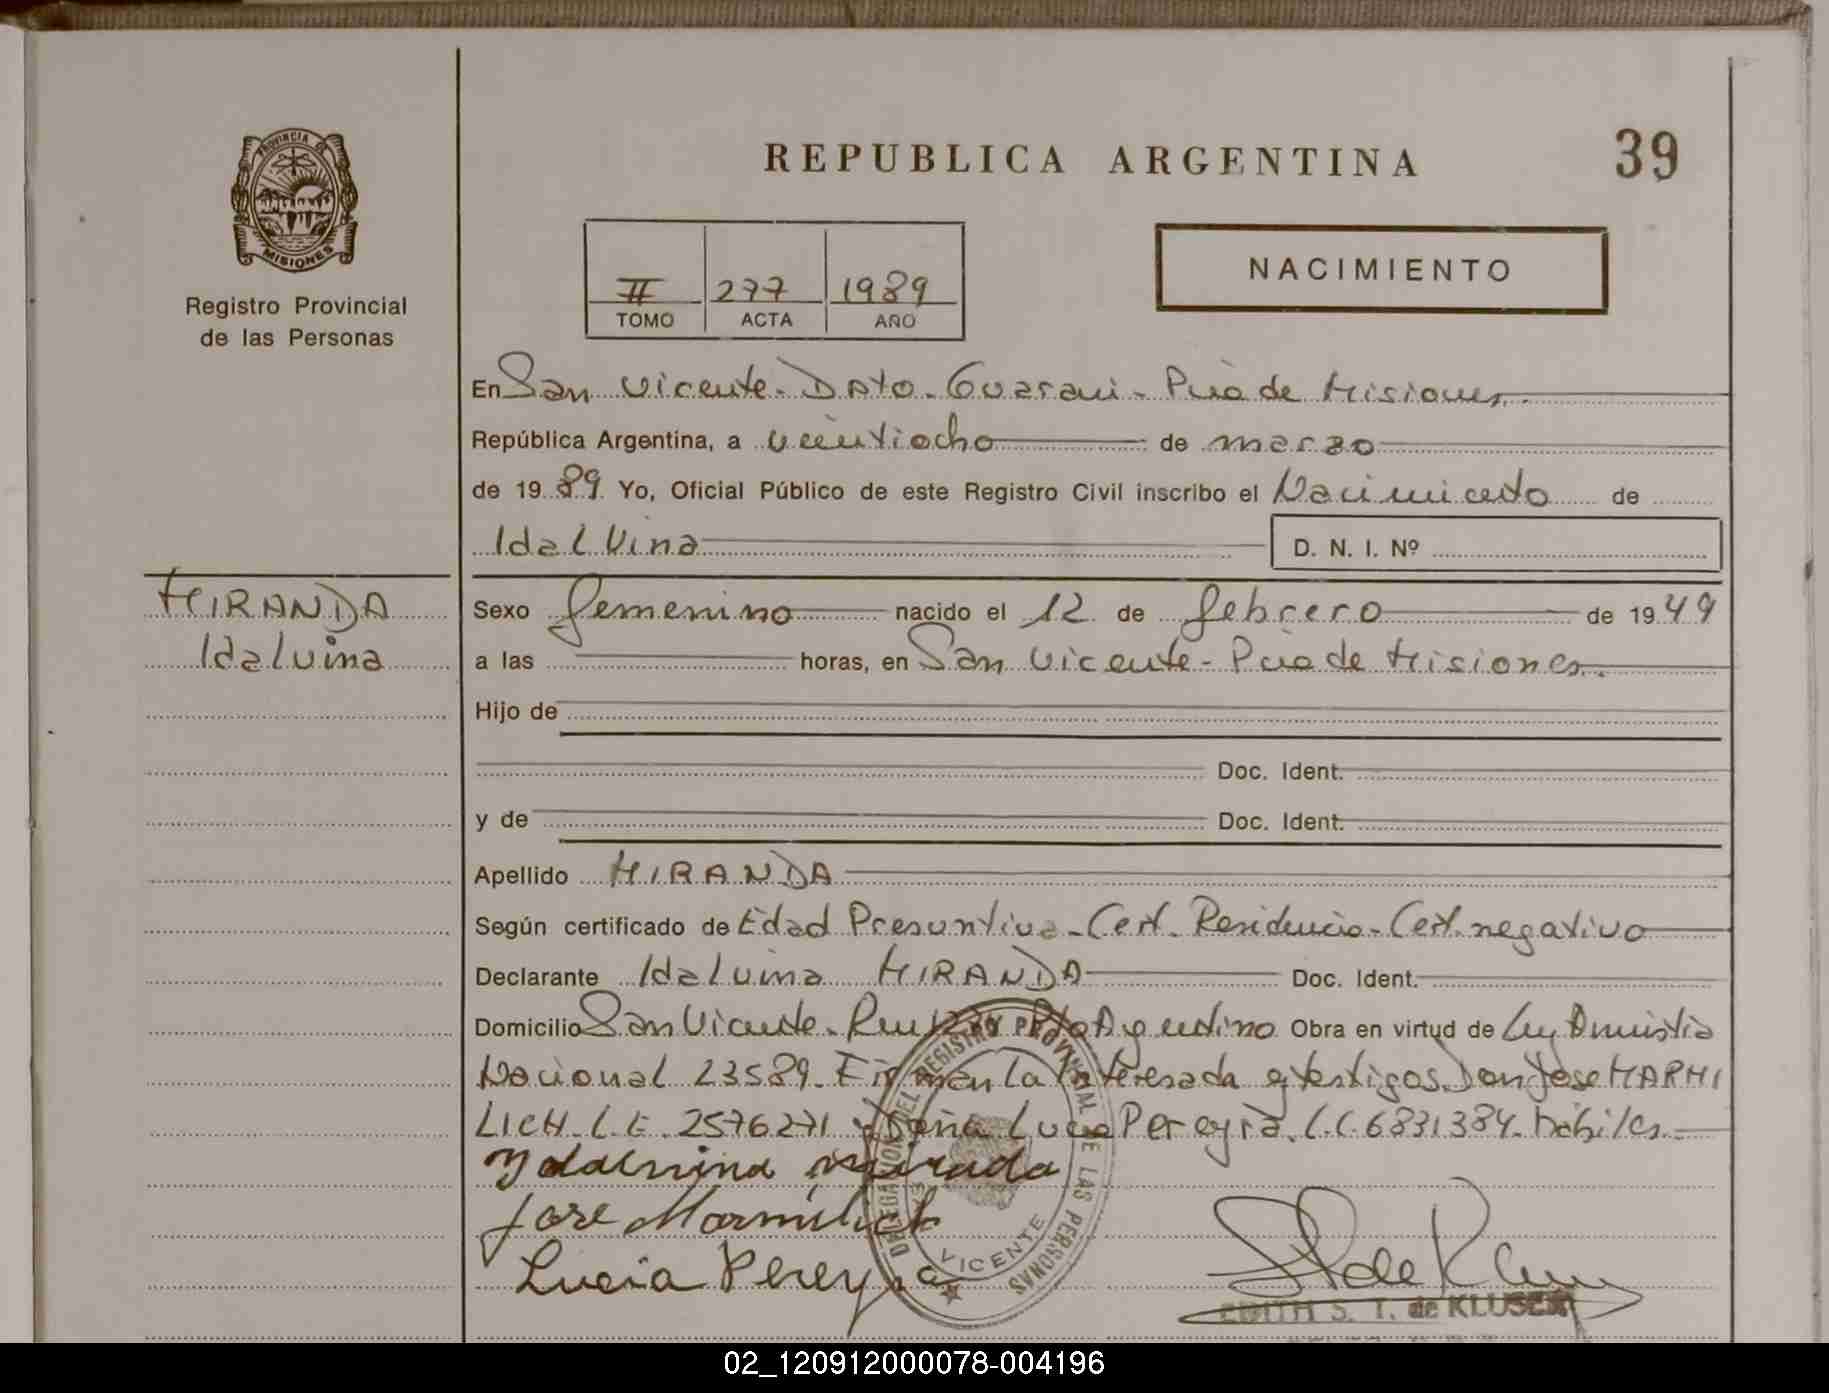 REPUBLICA ARGENTINA
39
PROVINCIA DE
MISIONES
Registro Provincial
de las Personas
II 277 1989
TOMO ACTA AÑO
NACIMIENTO
En San Vicente - Dpto - Guarani - Pcia de Misiones.
República Argentina, a veintiocho de marzo
de 1989. Yo, Oficial Público de este Registro Civil inscribo el Nacimiento de
Idalvina D. N. I. Nº
MIRANDA
Idalvina
Sexo femenino nacido el 12 de febrero de 1949
a las horas, en San Vicente - Pcia de Misiones.
Hijo de
Doc. Ident.
y de Doc. Ident.
Apellido MIRANDA
Según certificado de Edad Presuntiva - Cert. Residencia - Cert. negativo
Declarante Idalvina MIRANDA Doc. Ident.
Domicilio San Vicente - Pto Argentino Obra en virtud de Ley Amnistia
Nacional 23589. Firman la interesada y testigos Don Jose MARMI
LICH. L.E. 2576271 y Doña Lucia Pereyra. L.C. 6831384. habiles.
Ydalvina mirada
Jose Marmilich
Lucia Pereyra
DELEGACION DEL REGISTRO PROVINCIAL DE LAS PERSONAS
VICENTE
EDITH S. T. de KLUSER
02_120912000078-004196